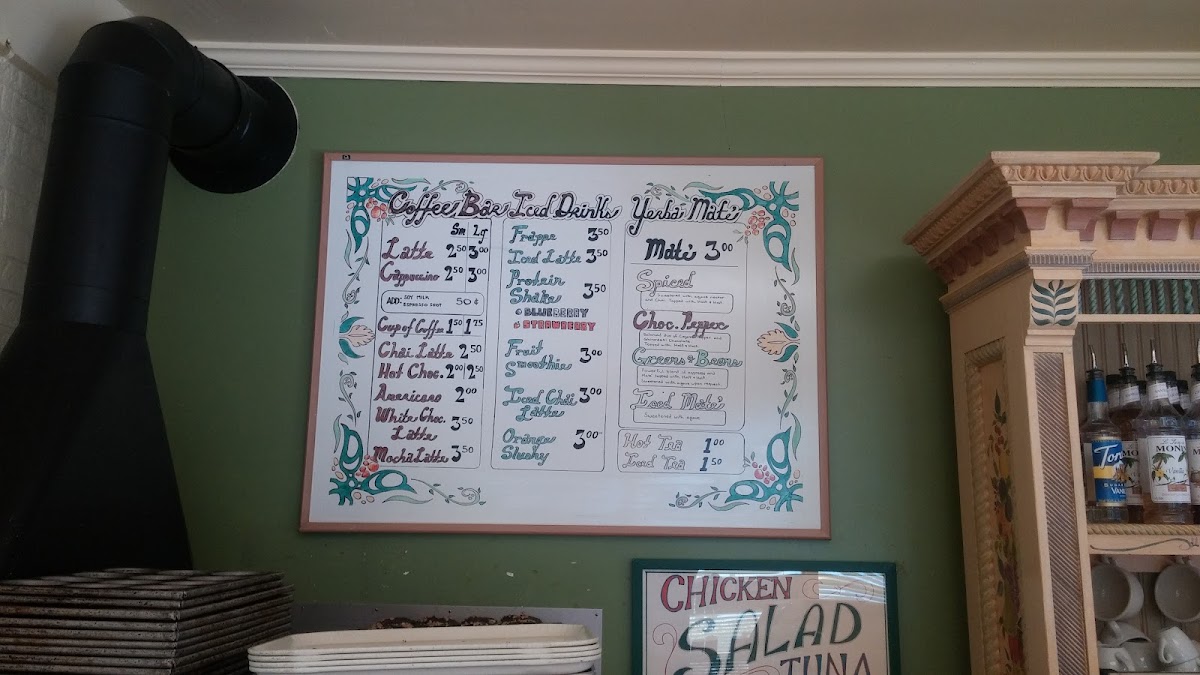 Coffee Bar
Sm Lg
Latte 2.50 3.00
Cappuccino 2.50 3.00
ADD: SOY MILK
ESPRESSO SHOT 50¢
Cup of Coffee 1.50 1.75
Chai Latte 2.50
Hot Choc. 2.00 2.50
Americano 2.00
White Choc.
Latte 3.50
Mocha Latte 3.50
Iced Drinks
Frappe 3.50
Iced Latte 3.50
Protein
Shake 3.50
BLUEBERRY
STRAWBERRY
Fruit
Smoothie 3.00
Iced Chai
Latte 3.00
Orange
Slushy 3.00
Yerba Maté
Maté 3.00
Spiced
Choc. Pepper
Greens & Beans
Iced Maté
Sweetened with agave
Hot Tea 1.00
Iced Tea 1.50
CHICKEN
SALAD
TUNA